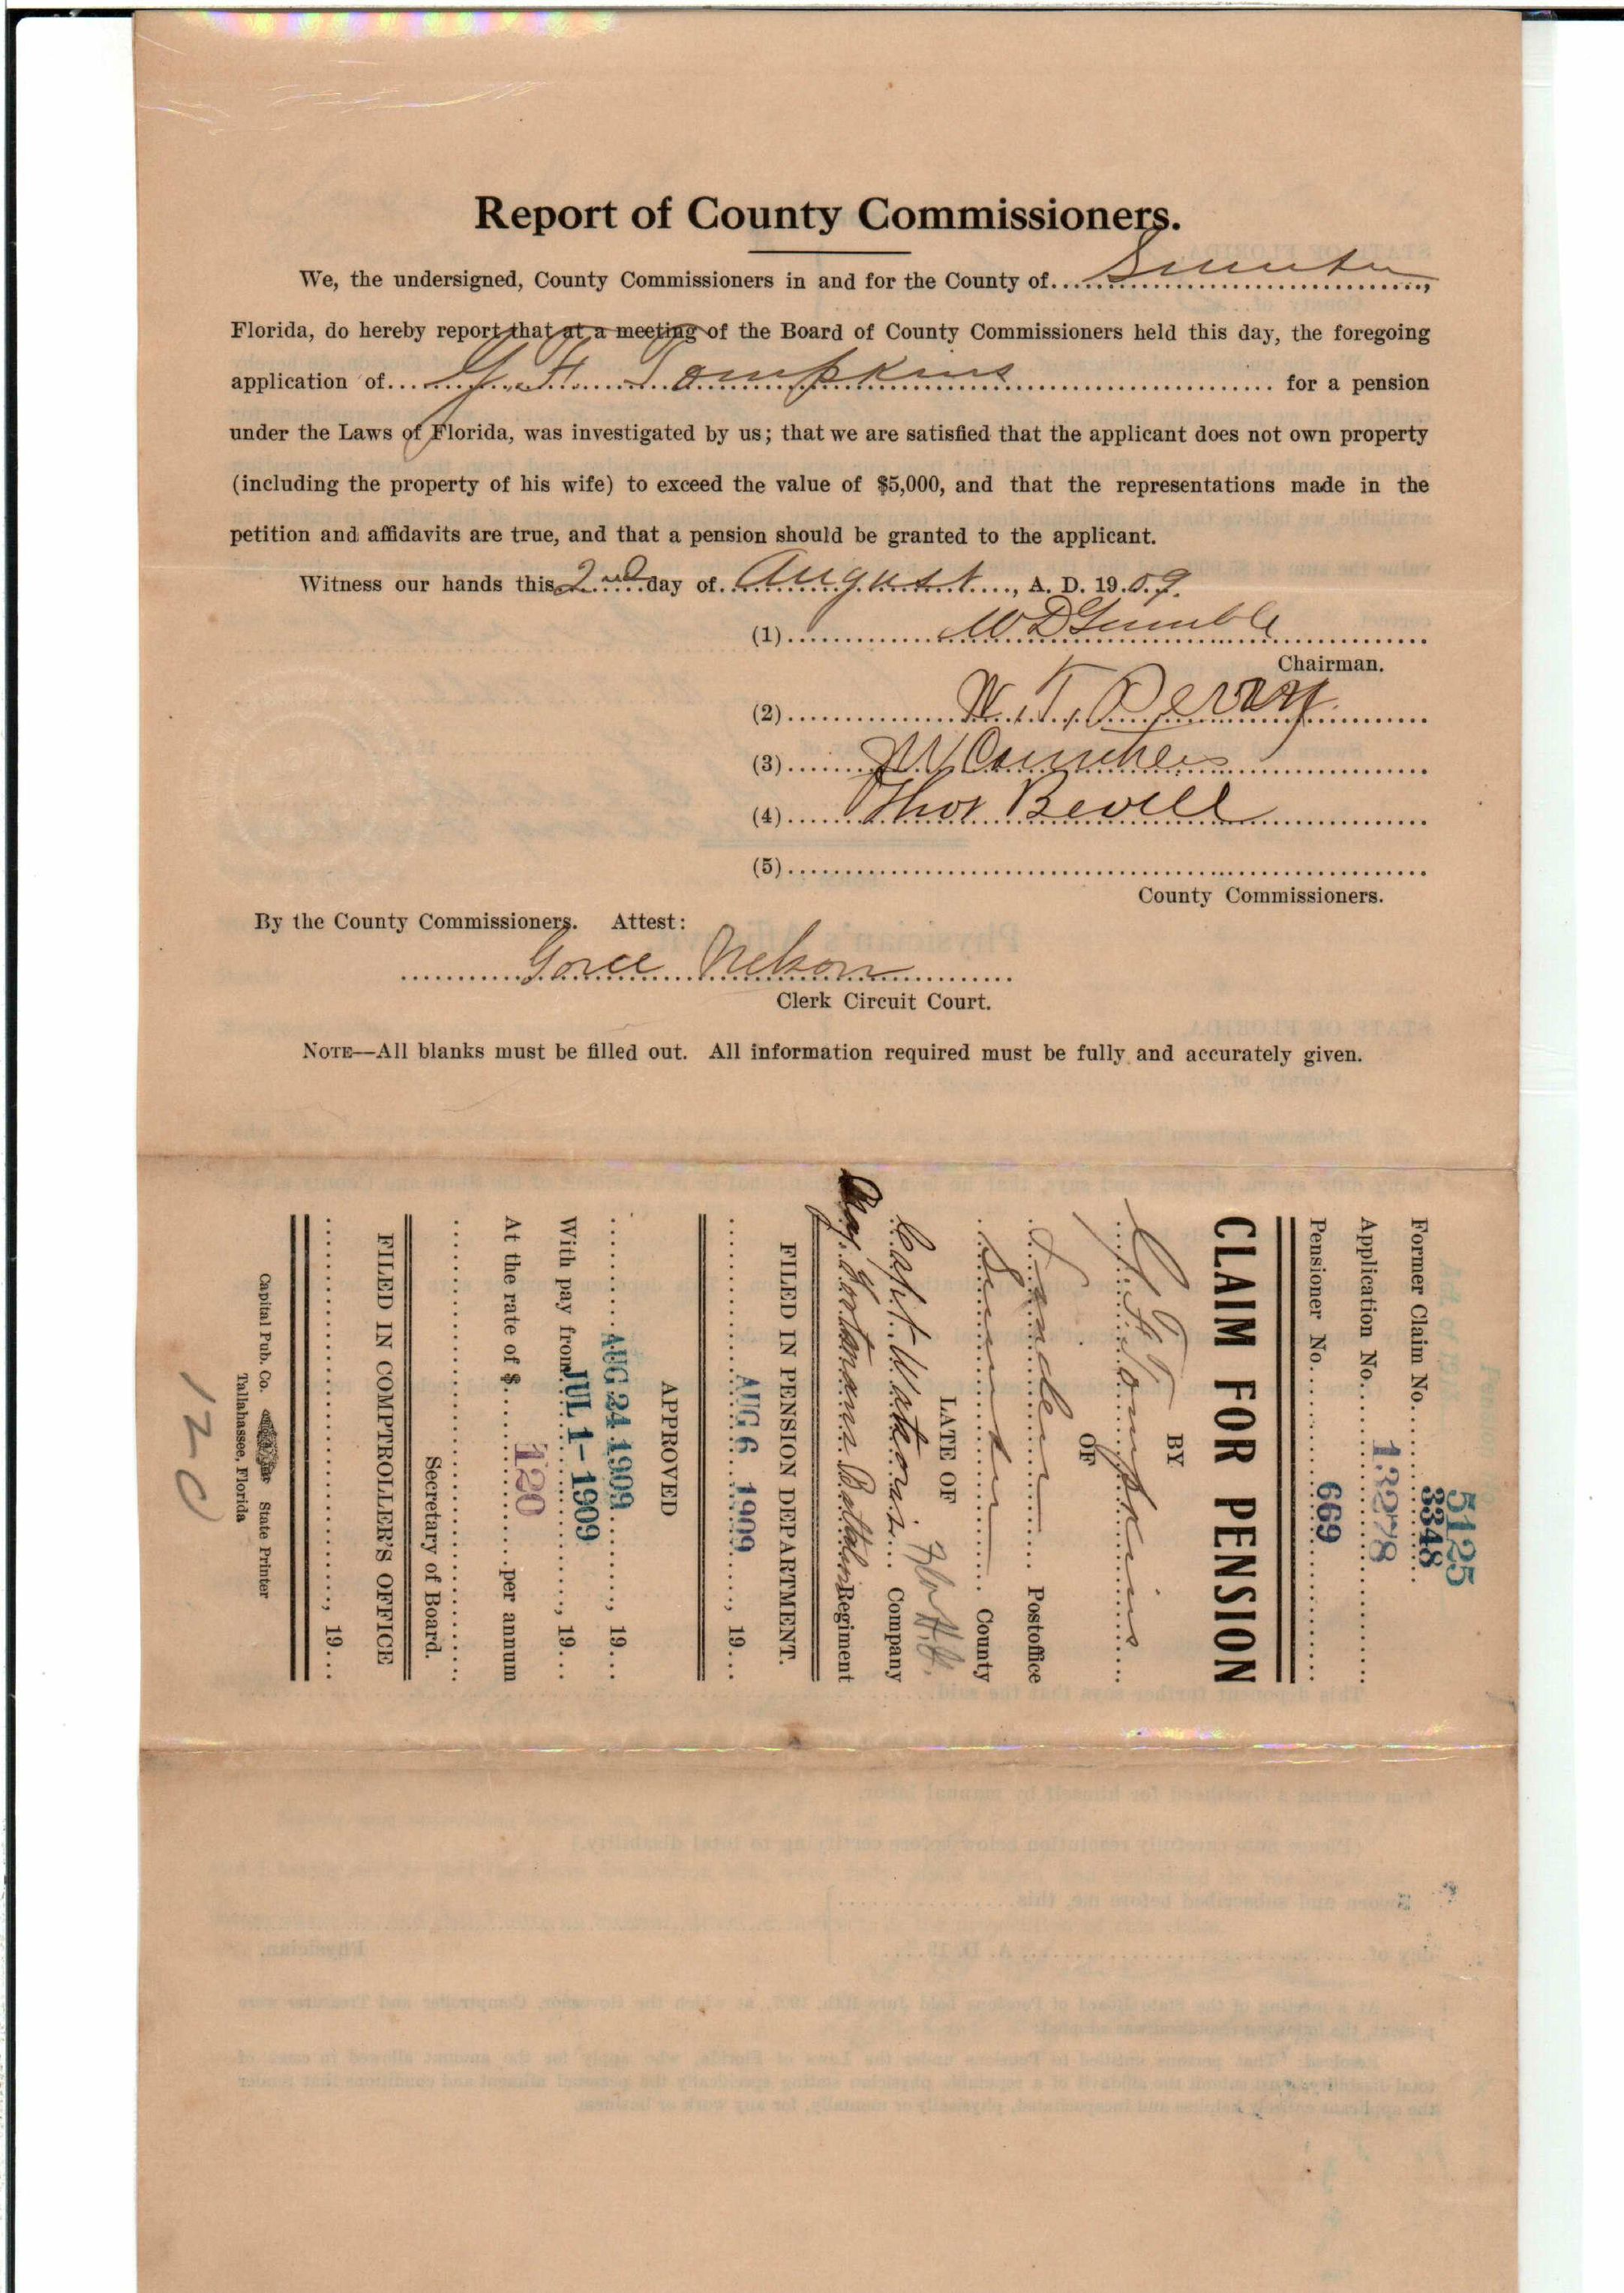 Report of County Commissioners.
We, the undersigned, County Commissioners in and for the County of Sumter,
Florida, do hereby report that at a meeting of the Board of County Commissioners held this day, the foregoing
application of G. H. Tompkins for a pension
under the Laws of Florida, was investigated by us; that we are satisfied that the applicant does not own property
(including the property of his wife) to exceed the value of $5,000, and that the representations made in the
petition and affidavits are true, and that a pension should be granted to the applicant.
Witness our hands this 2nd day of August, A. D. 1909.
(1) W D
Chairman.
(2) W. T. Perry
(3) J W
(4) Thos Bevill
(5)
County Commissioners.
By the County Commissioners. Attest:
Nelson
Clerk Circuit Court.
NOTE—All blanks must be filled out. All information required must be fully and accurately given.
5125
Former Claim No. 3348
Application No. 13278
Pensioner No. 669
CLAIM FOR PENSION
BY
G. H. Tompkins
OF
Linden Postoffice
Sumter County
LATE OF
Capt. Watson's Company
Regiment
FILED IN PENSION DEPARTMENT.
AUG 6 1909, 19
APPROVED
AUG 24 1909, 19
With pay from JUL 1-1909, 19
At the rate of $ 120 per annum
Secretary of Board.
FILED IN COMPTROLLER'S OFFICE
, 19
Capital Pub. Co. State Printer
Tallahassee, Florida
120